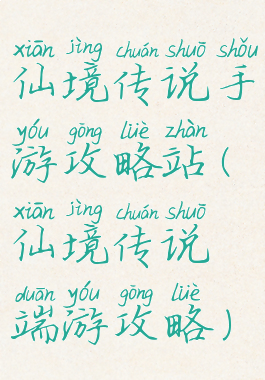 xiān jìng chuán shuō shǒu
仙境传说手
yóu gōng lüè zhàn
游攻略站(
xiān jìng chuán shuō
仙境传说
duān yóu gōng lüè
端游攻略)